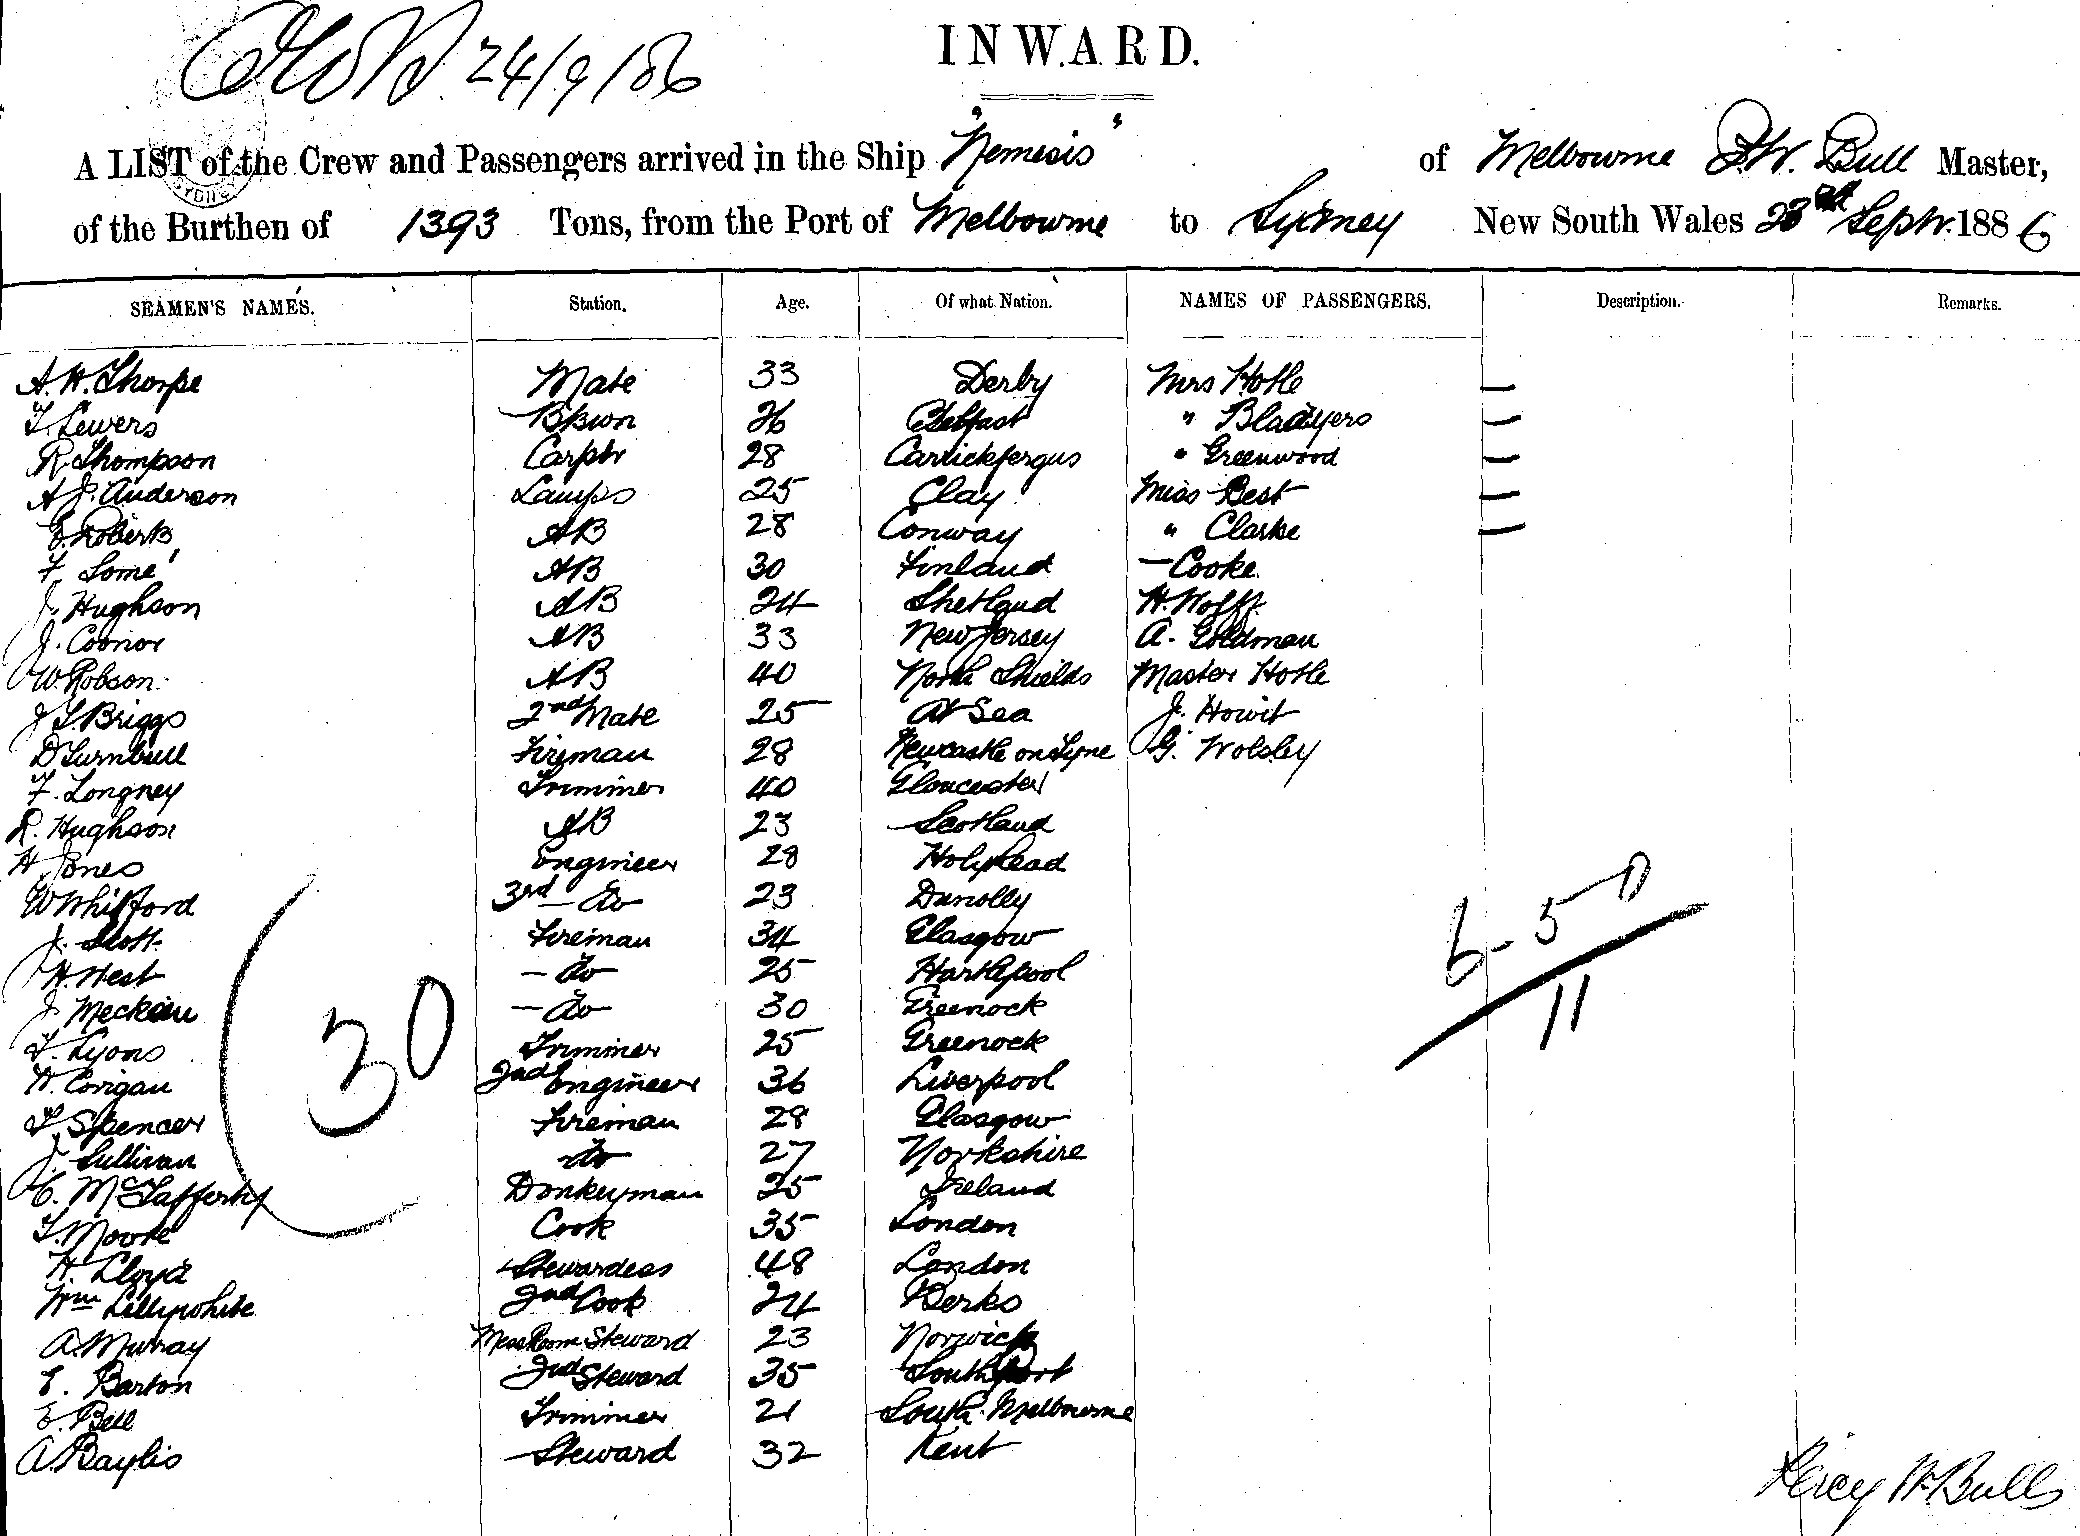 24/9/86
INWARD.
A LIST of the Crew and Passengers arrived in the Ship "Nemesis" of Melbourne P.W. Bull Master,
of the Burthen of 1393 Tons, from the Port of Melbourne to Sydney New South Wales 23rd Septr. 1886
SEAMEN'S NAMES. Station. Age. Of what Nation. NAMES OF PASSENGERS. Description. Remarks.
A. W. Thorpe Mate 33 Derby Mrs Hotle —
T Lewers Bswn 26 Belfast " —
R. Thompson Carptr 28 Carrickfergus " Greenwood —
A J. Anderson Lamps 25 Clay Miss Best —
E. Roberts AB 28 Conway " Clarke —
F. Some AB 30 Finland — Cooke
J. Hughson AB 24 Shetland H. Wolff
J. Connor AB 33 New Jersey A. Goldman
W. Robson AB 40 North Shields Master Hotle
J L Briggs 2nd Mate 25 At Sea J. Howit
D Turnbull Fireman 28 Newcastle on Tyne G. Wolsley
F. Longney Trimmer 40 Gloucester
R. Hughson AB 23 Scotland
H Jones Engineer 28 Holyhead
W Whitford 3rd — do 23 Dunolly
J. Scott Fireman 34 Glasgow
H. West — do 25 Hartlepool
J. Meckian — do 30 Greenock
T. Lyons Trimmer 25 Greenock
H. Corigan 2nd Engineer 36 Liverpool
T Spencer Fireman 28 Glasgow
J. Sullivan do 27 Yorkshire
C. McLafferty Donkeyman 25 Ireland
T. Moore Cook 35 London
H. Lloyd Stewardess 48 London
Wm Lillywhite 2nd Cook 24 Berks
A. Murray Mess Room Steward 23 Norwich
E. Barton 2nd Steward 35 Southport
E. Bell Trimmer 21 South Melbourne
A. Baylis Steward 32 Kent
30
6 - 5
11
Percy W. Bull